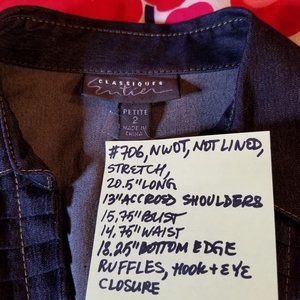 CLASSIQUES
Entier
PETITE
2
MADE IN
CHINA
#706, NWOT, NOT LINED,
STRETCH,
20.5" LONG
13" ACCROSS SHOULDERS
15.75" BUST
14.75" WAIST
18.25" BOTTOM EDGE
RUFFLES, HOOK + EYE
CLOSURE